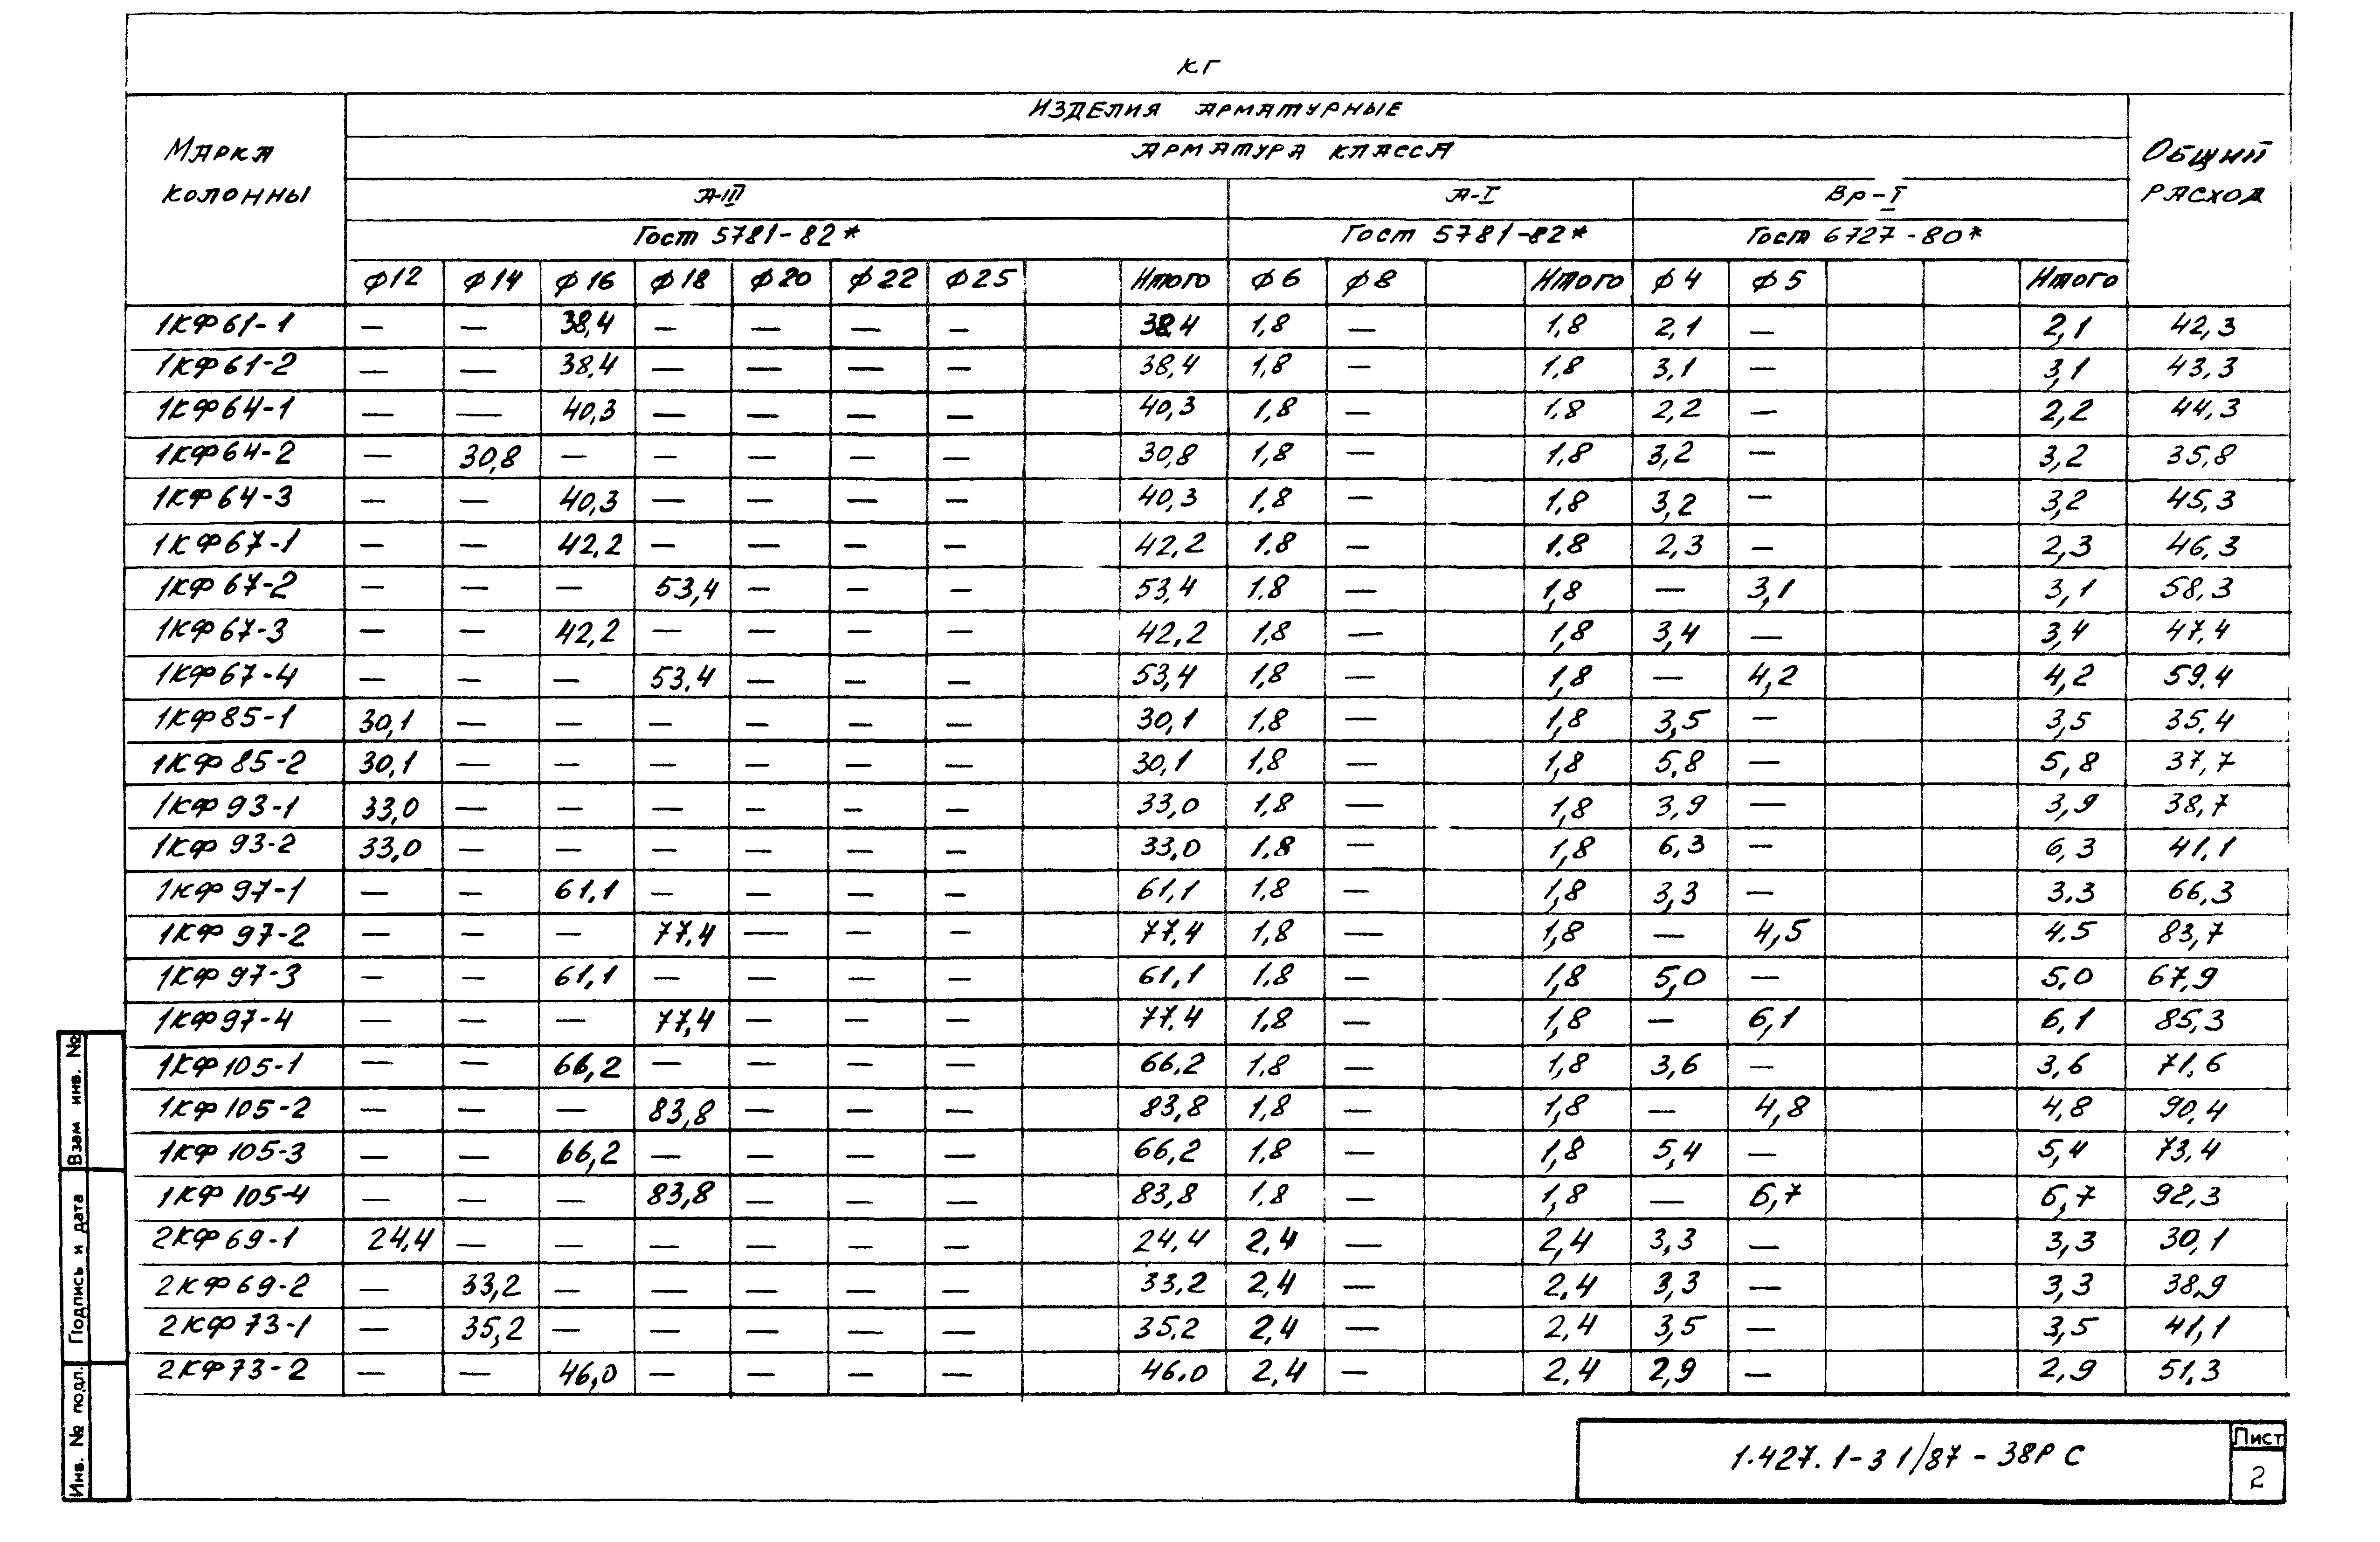 кг
Марка колонны
Изделия арматурные
Общий расход
Арматура класса
А-III А-I Вр-I
Гост 5781-82* Гост 5781-82* Гост 6727-80*
ф12 ф14 ф16 ф18 ф20 ф22 ф25 Итого ф6 ф8 Итого ф4 ф5 Итого
1КФ61-1 — — 38,4 — — — — 38.4 1,8 — 1,8 2,1 — 2,1 42,3
1КФ61-2 — — 38,4 — — — — 38,4 1,8 — 1,8 3,1 — 3,1 43,3
1КФ64-1 — — 40,3 — — — — 40,3 1,8 — 1.8 2,2 — 2,2 44,3
1КФ64-2 — 30,8 — — — — — 30,8 1,8 — 1.8 3,2 — 3,2 35,8
1КФ64-3 — — 40,3 — — — — 40,3 1,8 — 1.8 3,2 — 3,2 45,3
1КФ67-1 — — 42,2 — — — — 42,2 1.8 — 1.8 2,3 — 2,3 46,3
1КФ67-2 — — — 53,4 — — — 53,4 1.8 — 1,8 — 3,1 3,1 58,3
1КФ67-3 — — 42,2 — — — — 42,2 1,8 — 1,8 3,4 — 3,4 47,4
1КФ67-4 — — — 53.4 — — — 53,4 1,8 — 1,8 — 4,2 4,2 59.4
1КФ85-1 30,1 — — — — — — 30,1 1,8 — 1,8 3,5 — 3,5 35,4
1КФ85-2 30,1 — — — — — — 30,1 1,8 — 1,8 5,8 — 5,8 37,7
1КФ93-1 33,0 — — — — — — 33,0 1,8 — 1,8 3,9 — 3,9 38,7
1КФ93-2 33,0 — — — — — — 33,0 1.8 — 1,8 6,3 — 6,3 41,1
1КФ97-1 — — 61,1 — — — — 61,1 1,8 — 1,8 3,3 — 3.3 66,3
1КФ97-2 — — — 77,4 — — — 77,4 1,8 — 1,8 — 4,5 4.5 83,7
1КФ97-3 — — 61,1 — — — — 61,1 1,8 — 1,8 5,0 — 5,0 67,9
1КФ97-4 — — — 77,4 — — — 77.4 1,8 — 1,8 — 6,1 6,1 85,3
1КФ105-1 — — 66,2 — — — — 66,2 1.8 — 1,8 3,6 — 3,6 71,6
1КФ105-2 — — — 83,8 — — — 83,8 1,8 — 1,8 — 4,8 4,8 90,4
1КФ105-3 — — 66,2 — — — — 66,2 1.8 — 1,8 5,4 — 5,4 73,4
1КФ105-4 — — — 83,8 — — — 83,8 1.8 — 1,8 — 6,7 6,7 92,3
2КФ69-1 24,4 — — — — — — 24,4 2,4 — 2,4 3,3 — 3,3 30,1
2КФ69-2 — 33,2 — — — — — 33,2 2,4 — 2.4 3,3 — 3,3 38,9
2КФ73-1 — 35,2 — — — — — 35.2 2,4 — 2,4 3,5 — 3,5 41,1
2КФ73-2 — — 46,0 — — — — 46.0 2,4 — 2,4 2,9 — 2,9 51,3
Взам инв. №
Подпись и дата
Инв. № подл.
1.427.1-3 1/87 - 38РС
Лист
2